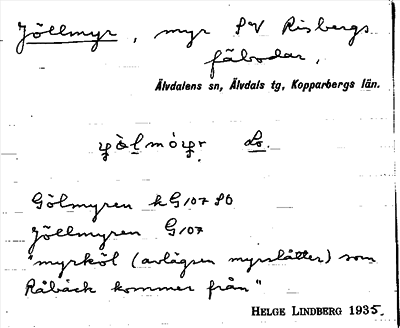 Jöllmyr, myr SV Risbergs
fäbodar,
Älvdalens sn, Älvdals tg, Kopparbergs län.
Gölmyren k G 107 SO
Jöllmyren G 107
"myrköl (avlägsen myrslåtter) som
Råbäck kommer från"
HELGE LINDBERG 1935.